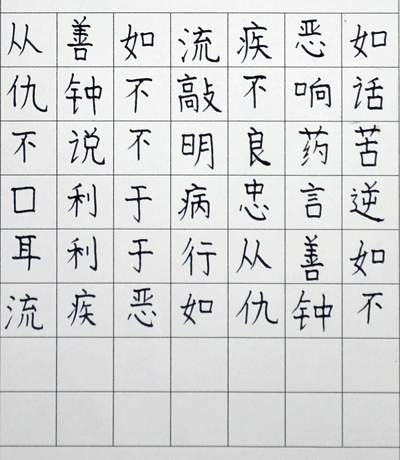 从善如流疾恶如
仇钟不敲不响话
不说不明良药苦
口利于病忠言逆
耳利于行从善如
流疾恶如仇钟不